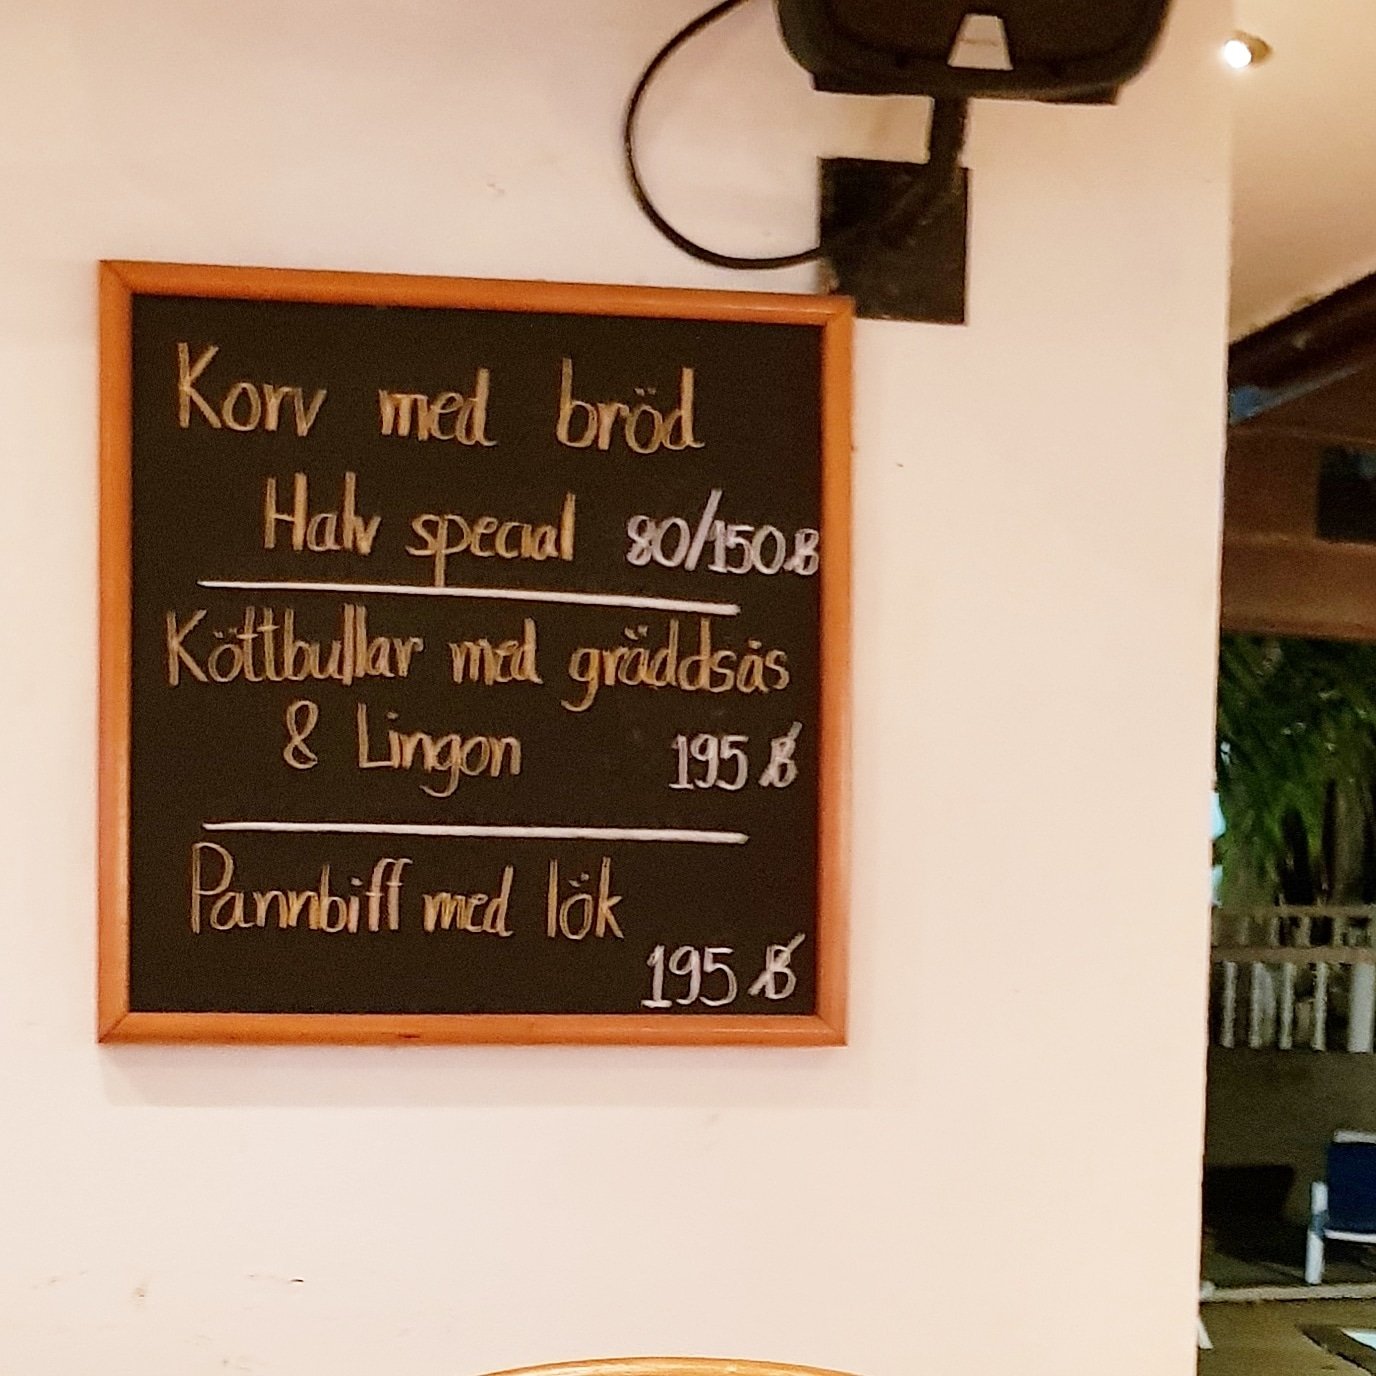 Korv med bröd
Halv special 80/150฿
Köttbullar med gräddsås
& Lingon 195 ฿
Pannbiff med lök
195 ฿